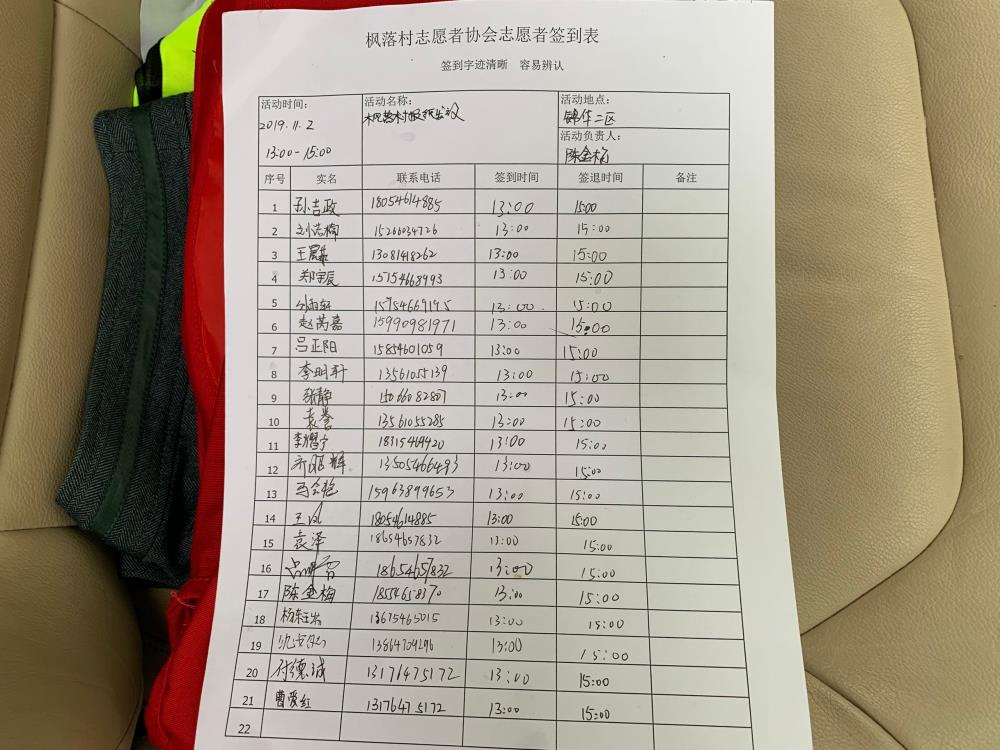 枫落村志愿者协会志愿者签到表
签到字迹清晰 容易辨认
活动时间: 活动名称: 活动地点:
2019.11.2 锦华二区
活动负责人:
13:00-15:00 陈金梅
序号 实名 联系电话 签到时间 签退时间 备注
1 孙吉政 18054614885 13:00 15:00
2 15266034726 13:00 15:00
3 13081418262 13:00 15:00
4 郑宇辰 15154668993 13:00 15:00
5 13:00 15:00
6 赵芮嘉 15990981971 13:00 15:00
7 吕正阳 15854601059 13:00 15:00
8 李明轩 13561055139 13:00 15:00
9 张静 15066082807 13:00 15:00
10 袁誉 13561055285 13:00 15:00
11 18315469420 13:00 15:00
12 齐昭辉 13505466493 13:00 15:00
13 15963899653 13:00 15:00
14 王凤 18054614885 13:00 15:00
15 袁泽 18654657832 13:00 15:00
16 18654657832 13:00 15:00
17 陈金梅 18554658370 13:00 15:00
18 13675465015 13:00 15:00
19 13864704296 13:00 15:00
20 付德诚 13176475172 13:00 15:00
21 曹爱红 13176475172 13:00 15:00
22